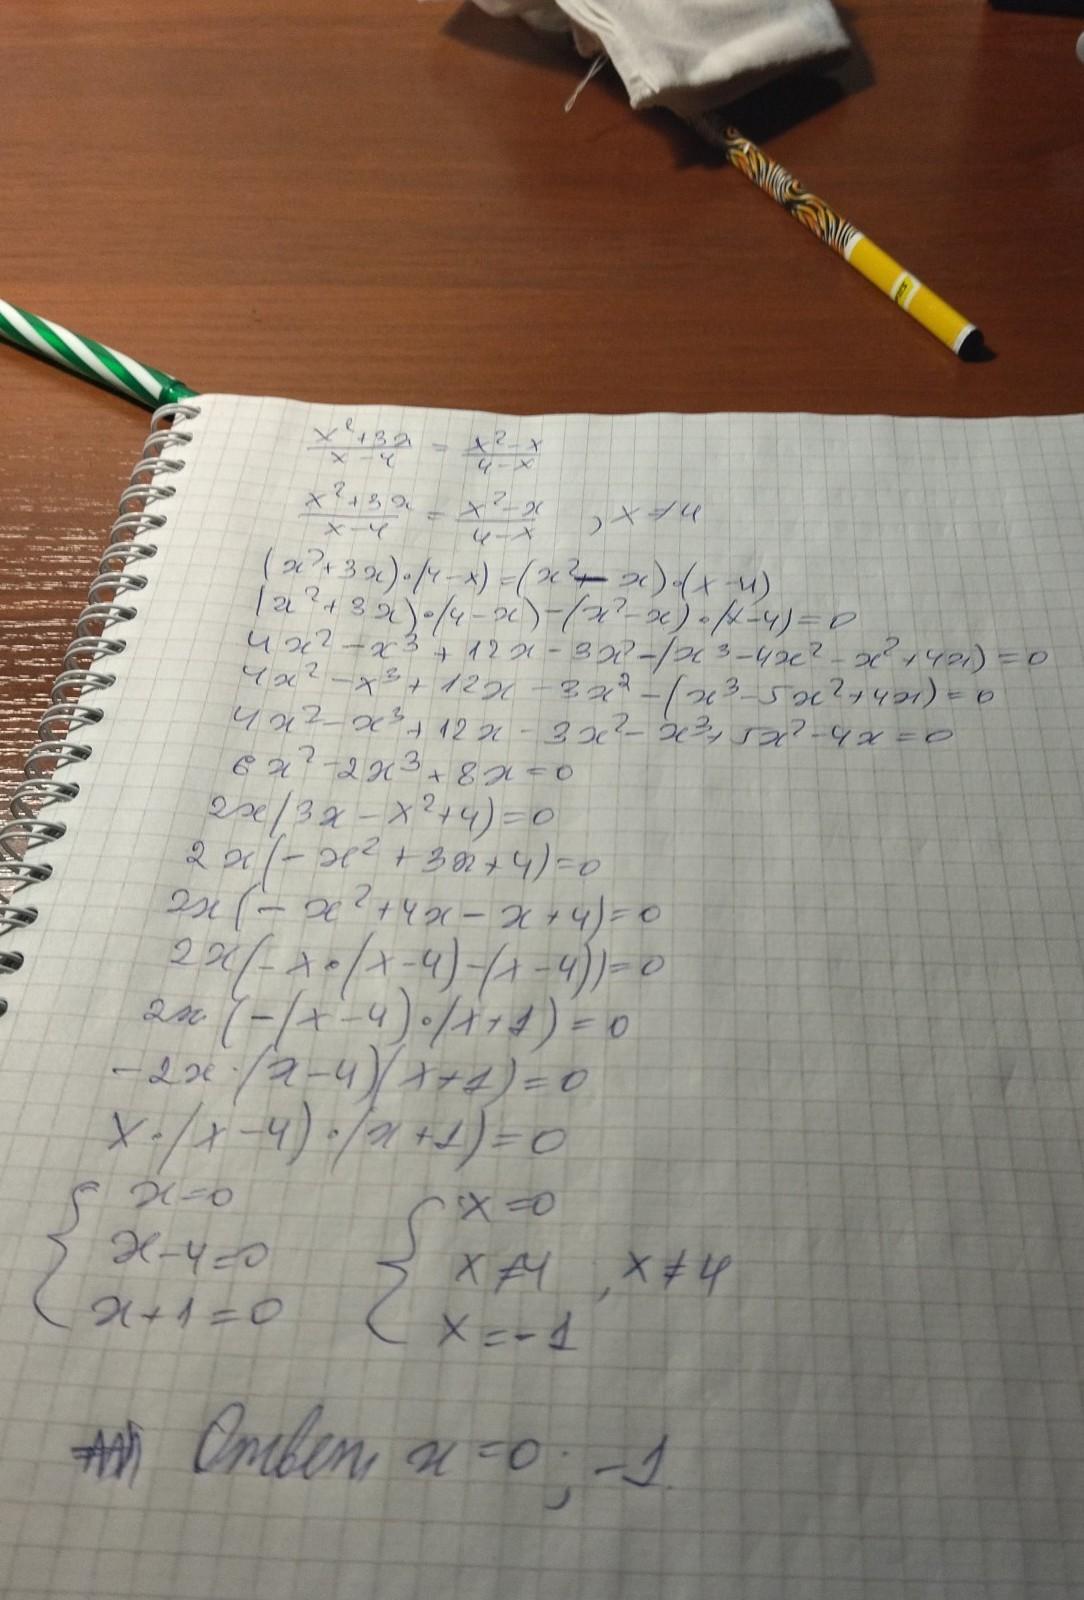 x²+3x/x-4 = x²-x/4-x
x²+3x/x-4 = x²-x/4-x , x≠4
(x²+3x)·(4-x)=(x²-x)·(x-4)
(x²+3x)·(4-x)-(x²-x)·(x-4)=0
4x²-x³+12x-3x²-(x³-4x²-x²+4x)=0
4x²-x³+12x-3x²-(x³-5x²+4x)=0
4x²-x³+12x-3x²-x³+5x²-4x=0
6x²-2x³+8x=0
2x(3x-x²+4)=0
2x(-x²+3x+4)=0
2x(-x²+4x-x+4)=0
2x(-x·(x-4)-(x-4))=0
2x·(-(x-4)·(x+1)=0
-2x·(x-4)(x+1)=0
x·(x-4)·(x+1)=0
{ x=0
x-4=0
x+1=0
{ x=0
x≠4 , x≠4
x=-1
Ответ, x=0; -1.